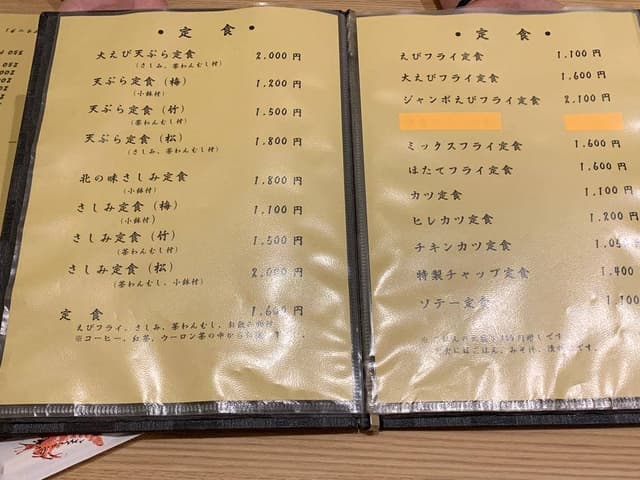 • 定 食 •
大えび天ぷら定食 2,000 円
(さしみ、茶わんむし付)
天ぷら定食 (梅) 1,200 円
(小鉢付)
天ぷら定食 (竹) 1,500 円
(茶わんむし付)
天ぷら定食 (松) 1,800 円
(さしみ、茶わんむし付)
北の味さしみ定食 1,800 円
(小鉢付)
さしみ定食 (梅) 1,100 円
(小鉢付)
さしみ定食 (竹) 1,500 円
(茶わんむし付)
さしみ定食 (松) 2,000 円
(茶わんむし、小鉢付)
定 食 1,600 円
えびフライ、さしみ、茶わんむし、お飲み物付
※コーヒー、紅茶、ウーロン茶の中から
• 定 食 •
えびフライ定食 1,100 円
大えびフライ定食 1,600 円
ジャンボえびフライ定食 2,100 円
ミックスフライ定食 1,600 円
ほたてフライ定食 1,600 円
カツ定食 1,100 円
ヒレカツ定食 1,200 円
チキンカツ定食 1,05
特製チャップ定食 1,400
ソテー定食 1,100
ごはんの大盛り 100円増しです。
定食にはごはん、みそ汁、漬